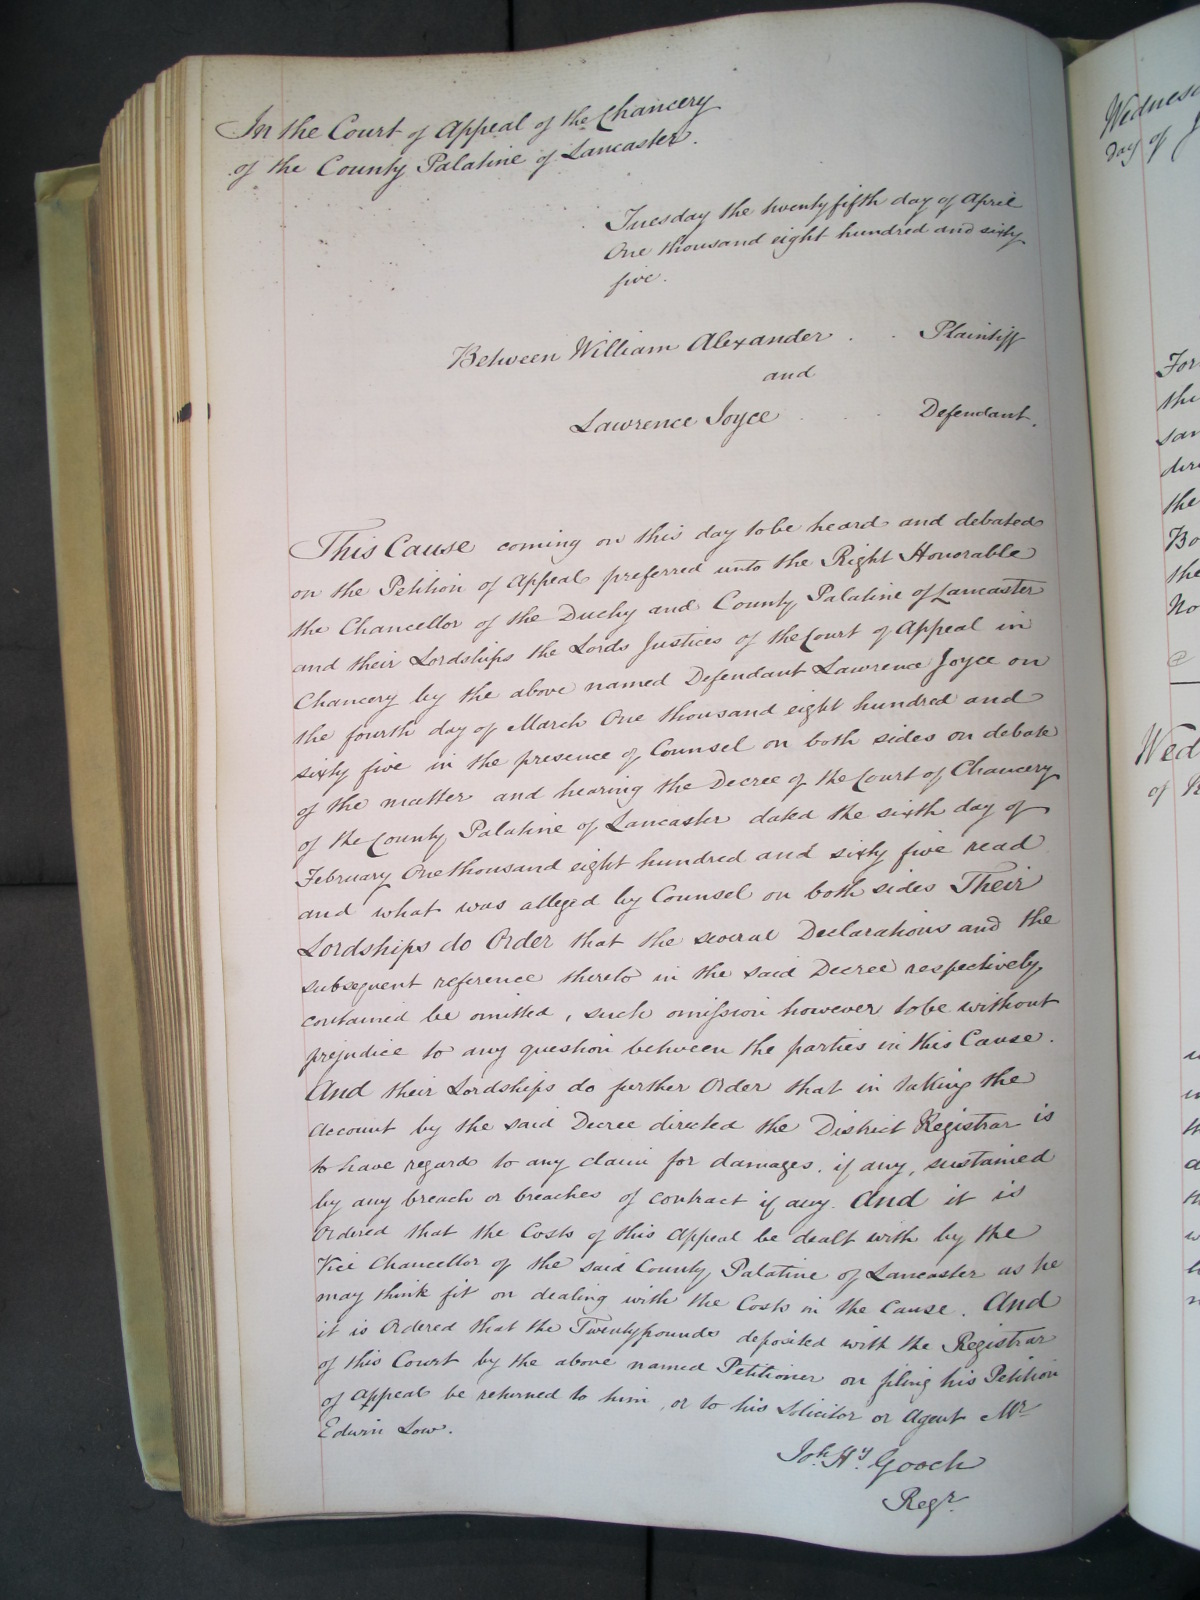 In the Court of Appeal of the Chancery
of the County Palatine of Lancaster.
Tuesday the twenty fifth day of April
One thousand eight hundred and sixty
five.
Between William Alexander . . Plaintiff
and
Lawrence Joyce . . Defendant.
This Cause coming on this day to be heard and debated
on the Petition of Appeal preferred unto the Right Honorable
the Chancellor of the Duchy and County Palatine of Lancaster
and their Lordships the Lords Justices of the Court of Appeal in
Chancery by the above named Defendant Lawrence Joyce on
the fourth day of March One thousand eight hundred and
sixty five in the presence of Counsel on both sides on debate
of the matter and hearing the Decree of the Court of Chancery
of the County Palatine of Lancaster dated the sixth day of
February One thousand eight hundred and sixty five read
and what was alleged by Counsel on both sides Their
Lordships do Order that the several Declarations and the
subsequent reference thereto in the said Decree respectively
contained be omitted, such omission however to be without
prejudice to any question between the parties in this Cause.
And their Lordships do further Order that in taking the
Account by the said Decree directed the District Registrar is
to have regard to any claim for damages, if any, sustained
by any breach or breaches of contract if any. And it is
Ordered that the Costs of this Appeal be dealt with by the
Vice Chancellor of the said County Palatine of Lancaster as he
may think fit on dealing with the Costs in the Cause. And
it is Ordered that the Twenty pounds deposited with the Registrar
of this Court by the above named Petitioner on filing his Petition
of Appeal be returned to him, or to his Solicitor or Agent Mr
Edwin Low.
Joh. Hy. Gooch
Regr.
Wednes
day of J
For
the
sam
dire
the
Bo
the
No
Wed
of